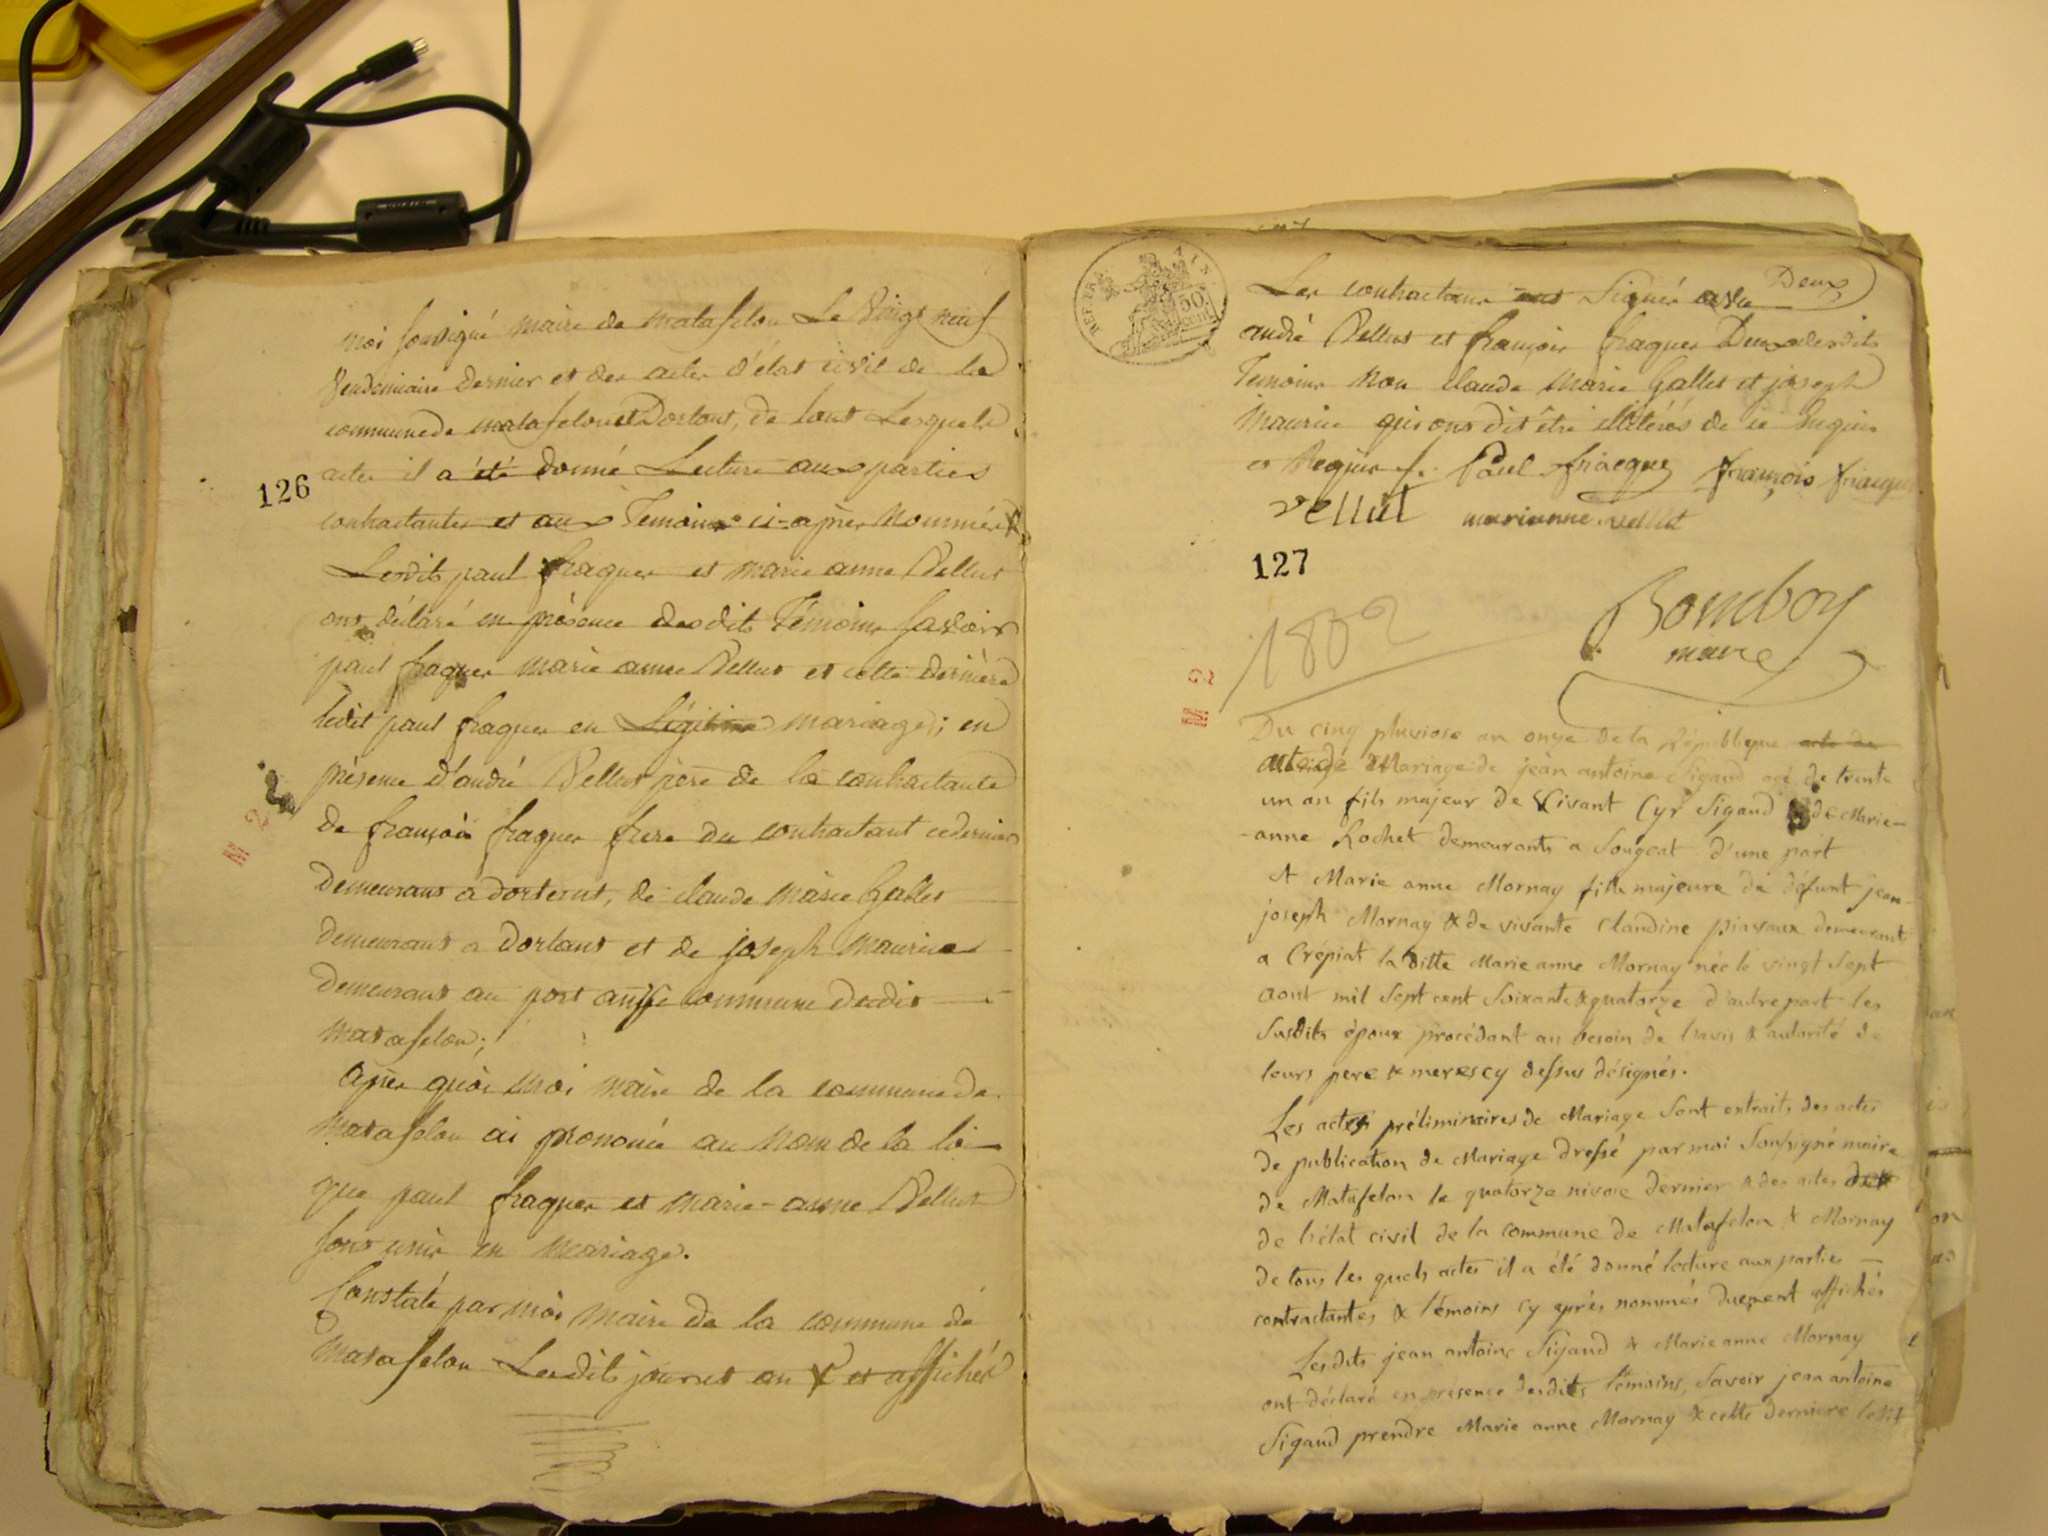 moi soussigné maire de matafelon Le Vingt neuf
Vendemiaire dernier et des actes d'état civil de la
commune de matafelon et Dortant, de tous Lesquels
actes il a été donné Lecture aux parties
126
contractantes et aux Temoins ci-après Nommés
Lesdits paul fraquer et marie anne Vellut
ont déclaré en présence desdits Témoins savoir
paul fraquer marie anne Vellut et cette dernière
ledit paul fraquer en Légitime mariage; en
présence d'andré Vellut père de la contractante
de françois fraquer frere du contractant ce dernier
demeurant a dortant, de claude marie Gallet
demeurant a dortant et de joseph maurice
demeurant au port commune dudit
matafelon;
après quoi moi maire de la commune de
matafelon ai prononcé au Nom de la loi
que paul fraquer et marie-anne Vellut
sont unis en mariage.
Constaté par moi maire de la commune de
matafelon Lesdits jour et an et affichés
REP. FRA. AIN
50 cent
Deux
Les contractans ont signé avec
andré Vellut et françois fraquer Deux desdits
Temoins Non claude marie Gallet et joseph
maurice qui ont dit être illitérés de ce Enquis
et Requis Paul friacque françois friacque
vellut marianne vellut
127
Bomboy
maire
1802
Du cinq pluviose an onze de la République acte de
acte de Mariage de jean antoine Sigaud agé de trente
un an fils majeur de Vivant Cyr Sigaud & de Marie-
anne Rochet demeurants a Songeat d'une part
et Marie anne Mornay fille majeure de défunt jean-
joseph Mornay & de vivante Claudine piavoux demeurant
a Crépiat la ditte Marie anne Mornay née le vingt Sept
aout mil Sept cent Soixante & quatorze d'autre part les
Susdits époux procédant au besoin de l'avis & autorité de
leurs pere & meres cy dessus désignés.
Les actes préliminaires de Mariage Sont extraits des actes
de publication de Mariage dressé par moi Soussigné maire
de Matafelon le quatorze nivose dernier & des actes
de l'état civil de la commune de Matafelon & Mornay
de tous les quels actes il a été donné lecture aux parties
contractantes & témoins cy après nommés duement affichés
Lesdits jean antoine Sigaud & Marie anne Mornay
ont déclaré en présence desdits témoins, Savoir jean antoine
Sigaud prendre Marie anne Mornay & cette derniere ledit